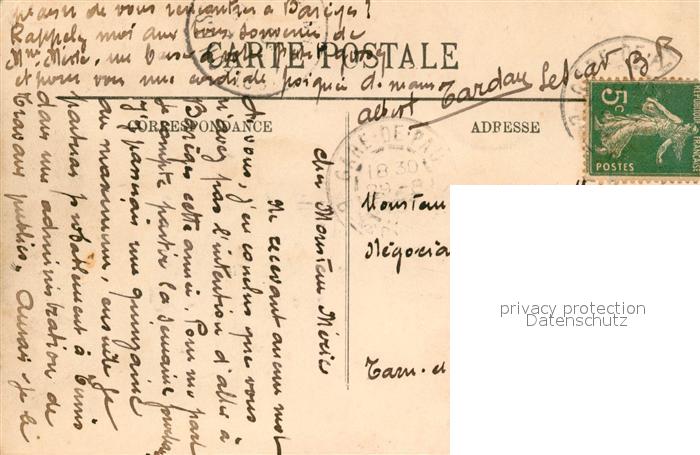 plaisir de vous rencontrer à Barèges ?
Rappelez moi aux bons souvenirs de
Mme Méric, un baiser à
et pour vous une cordiale poignée de mains
Albert Tardan Lescar B P
CARTE POSTALE
CORRESPONDANCE
ADRESSE
Cher Monsieur Méric
Ne recevant aucun mot
de vous, j'en conclus que vous
n'avez pas l'intention d'aller à
Barèges cette année. Pour ma part
je compte partir la semaine prochaine
j'y passerai une quinzaine
au maximum, ensuite je
partirai probablement à Tunis
dans une administration de
travaux publics. Aurai-je le
GARE-DE-PAU
18 30
Monsieur
Négocia
Tarn-et
5c
POSTES
privacy protection
Datenschutz